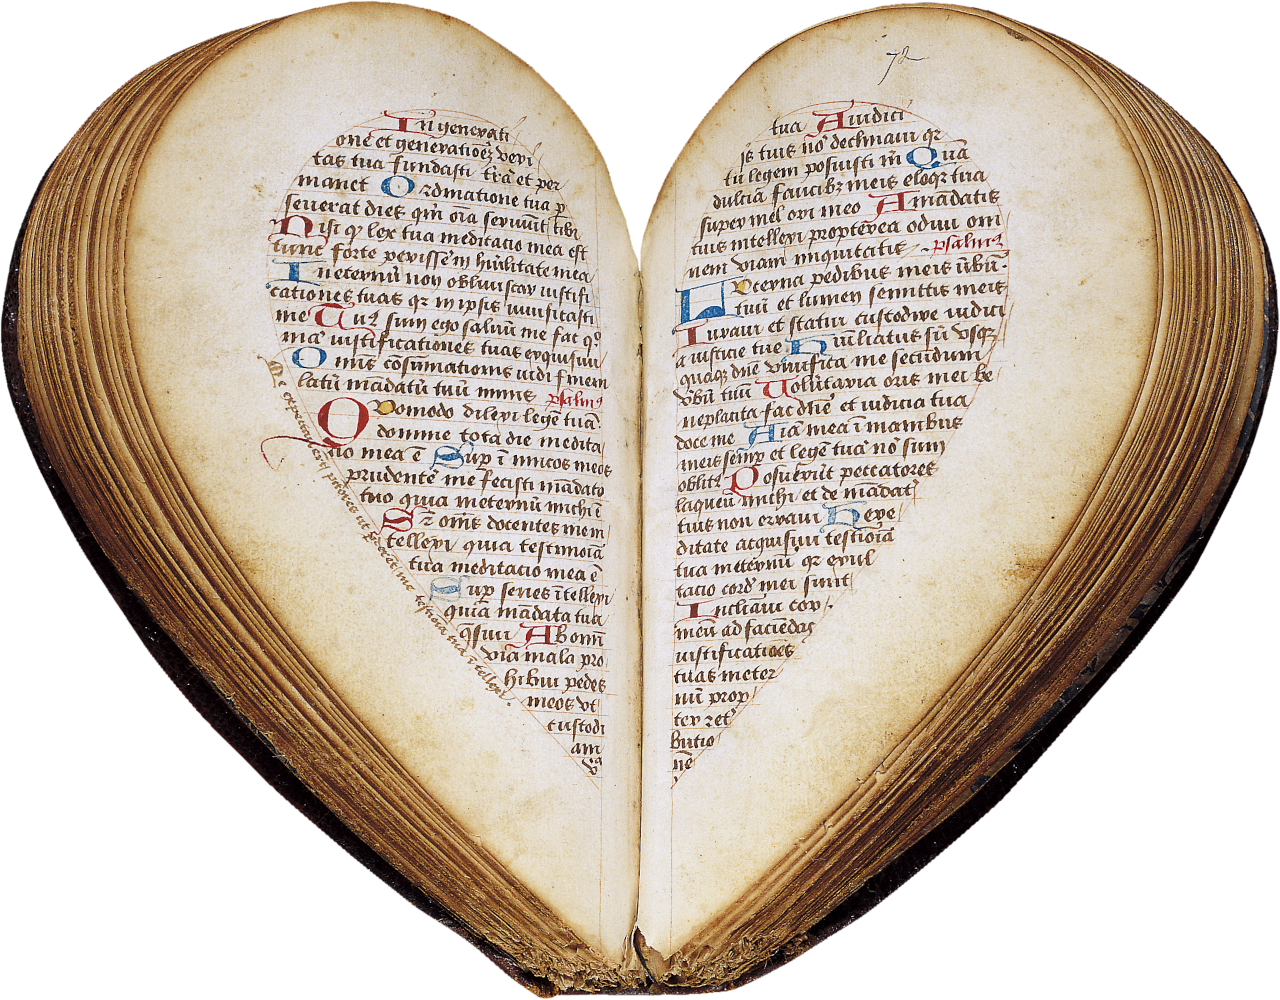 In generati
one et generationē veri
tas tua fundasti trā et per
manet Ordinatione tua p
seuerat dies qm̄ oīa seruiūt tibi
Nisi q lex tua meditatio mea est
tunc forte perissē in hūilitate mea
In eternū non obliuiscar iustifi
cationes tuas qr in ipsis uiuificasti
me Tuus sum ego saluū me fac qo
ma iustificationes tuas exquisiui
Omnis cōsūmationis uidi finem
latū mādatū tuū nimis psalmus
Quomodo dilexi legē tuā
domine tota die medita
tio mea ē Sup inimicos meos
prudentē me fecisti mādato
tuo quia in eternū michi ē
Sr omīs docentes me in
tellexi quia testimoīa
tua meditatio mea ē
Sup senes ītellexi
quia mādata tua
q̄siui Ab omī
via mala pro
hibui pedes
meos vt
custodi
am
Me expectauerūt pctores ut pderēt me testimoīa tua ītellexi.
72
tua A iudici
is tuis nō declinaui qr
tu legem posuisti m̄ Quā
dulcia faucibz meis eloqa tua
super mel ori meo A mādatis
tuis intellexi propterea odiui om
nem viam iniquitatis psalmus
Lucerna pedibus meis ūbū
tuū et lumen semittis meis
Iuraui et statui custodire iudici
a iusticie tue Hūiliatus sū vsqz
quaqz dn̄e viuifica me secūdum
vbū tuū Volūtaria oris mei be
neplacita fac dn̄e et iudicia tua
doce me Aīa mea ī manibus
meis semp et legē tuā nō sum
oblitus Posuerūt peccatores
laqueū michi et de mādatis
tuis non erraui Here
ditate acquisiui testioīa
tua in eternū qr exul
tacio cord mei sunt
Inclinaui cor
meū ad faciēdas
iustificatiōes
tuas in eter
nū prop
ter ret
butio
nē